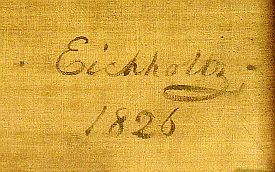 Eichholtz
1826